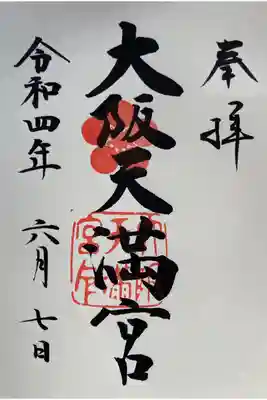 奉拝
大阪天満宮
令和四年 六月 七日